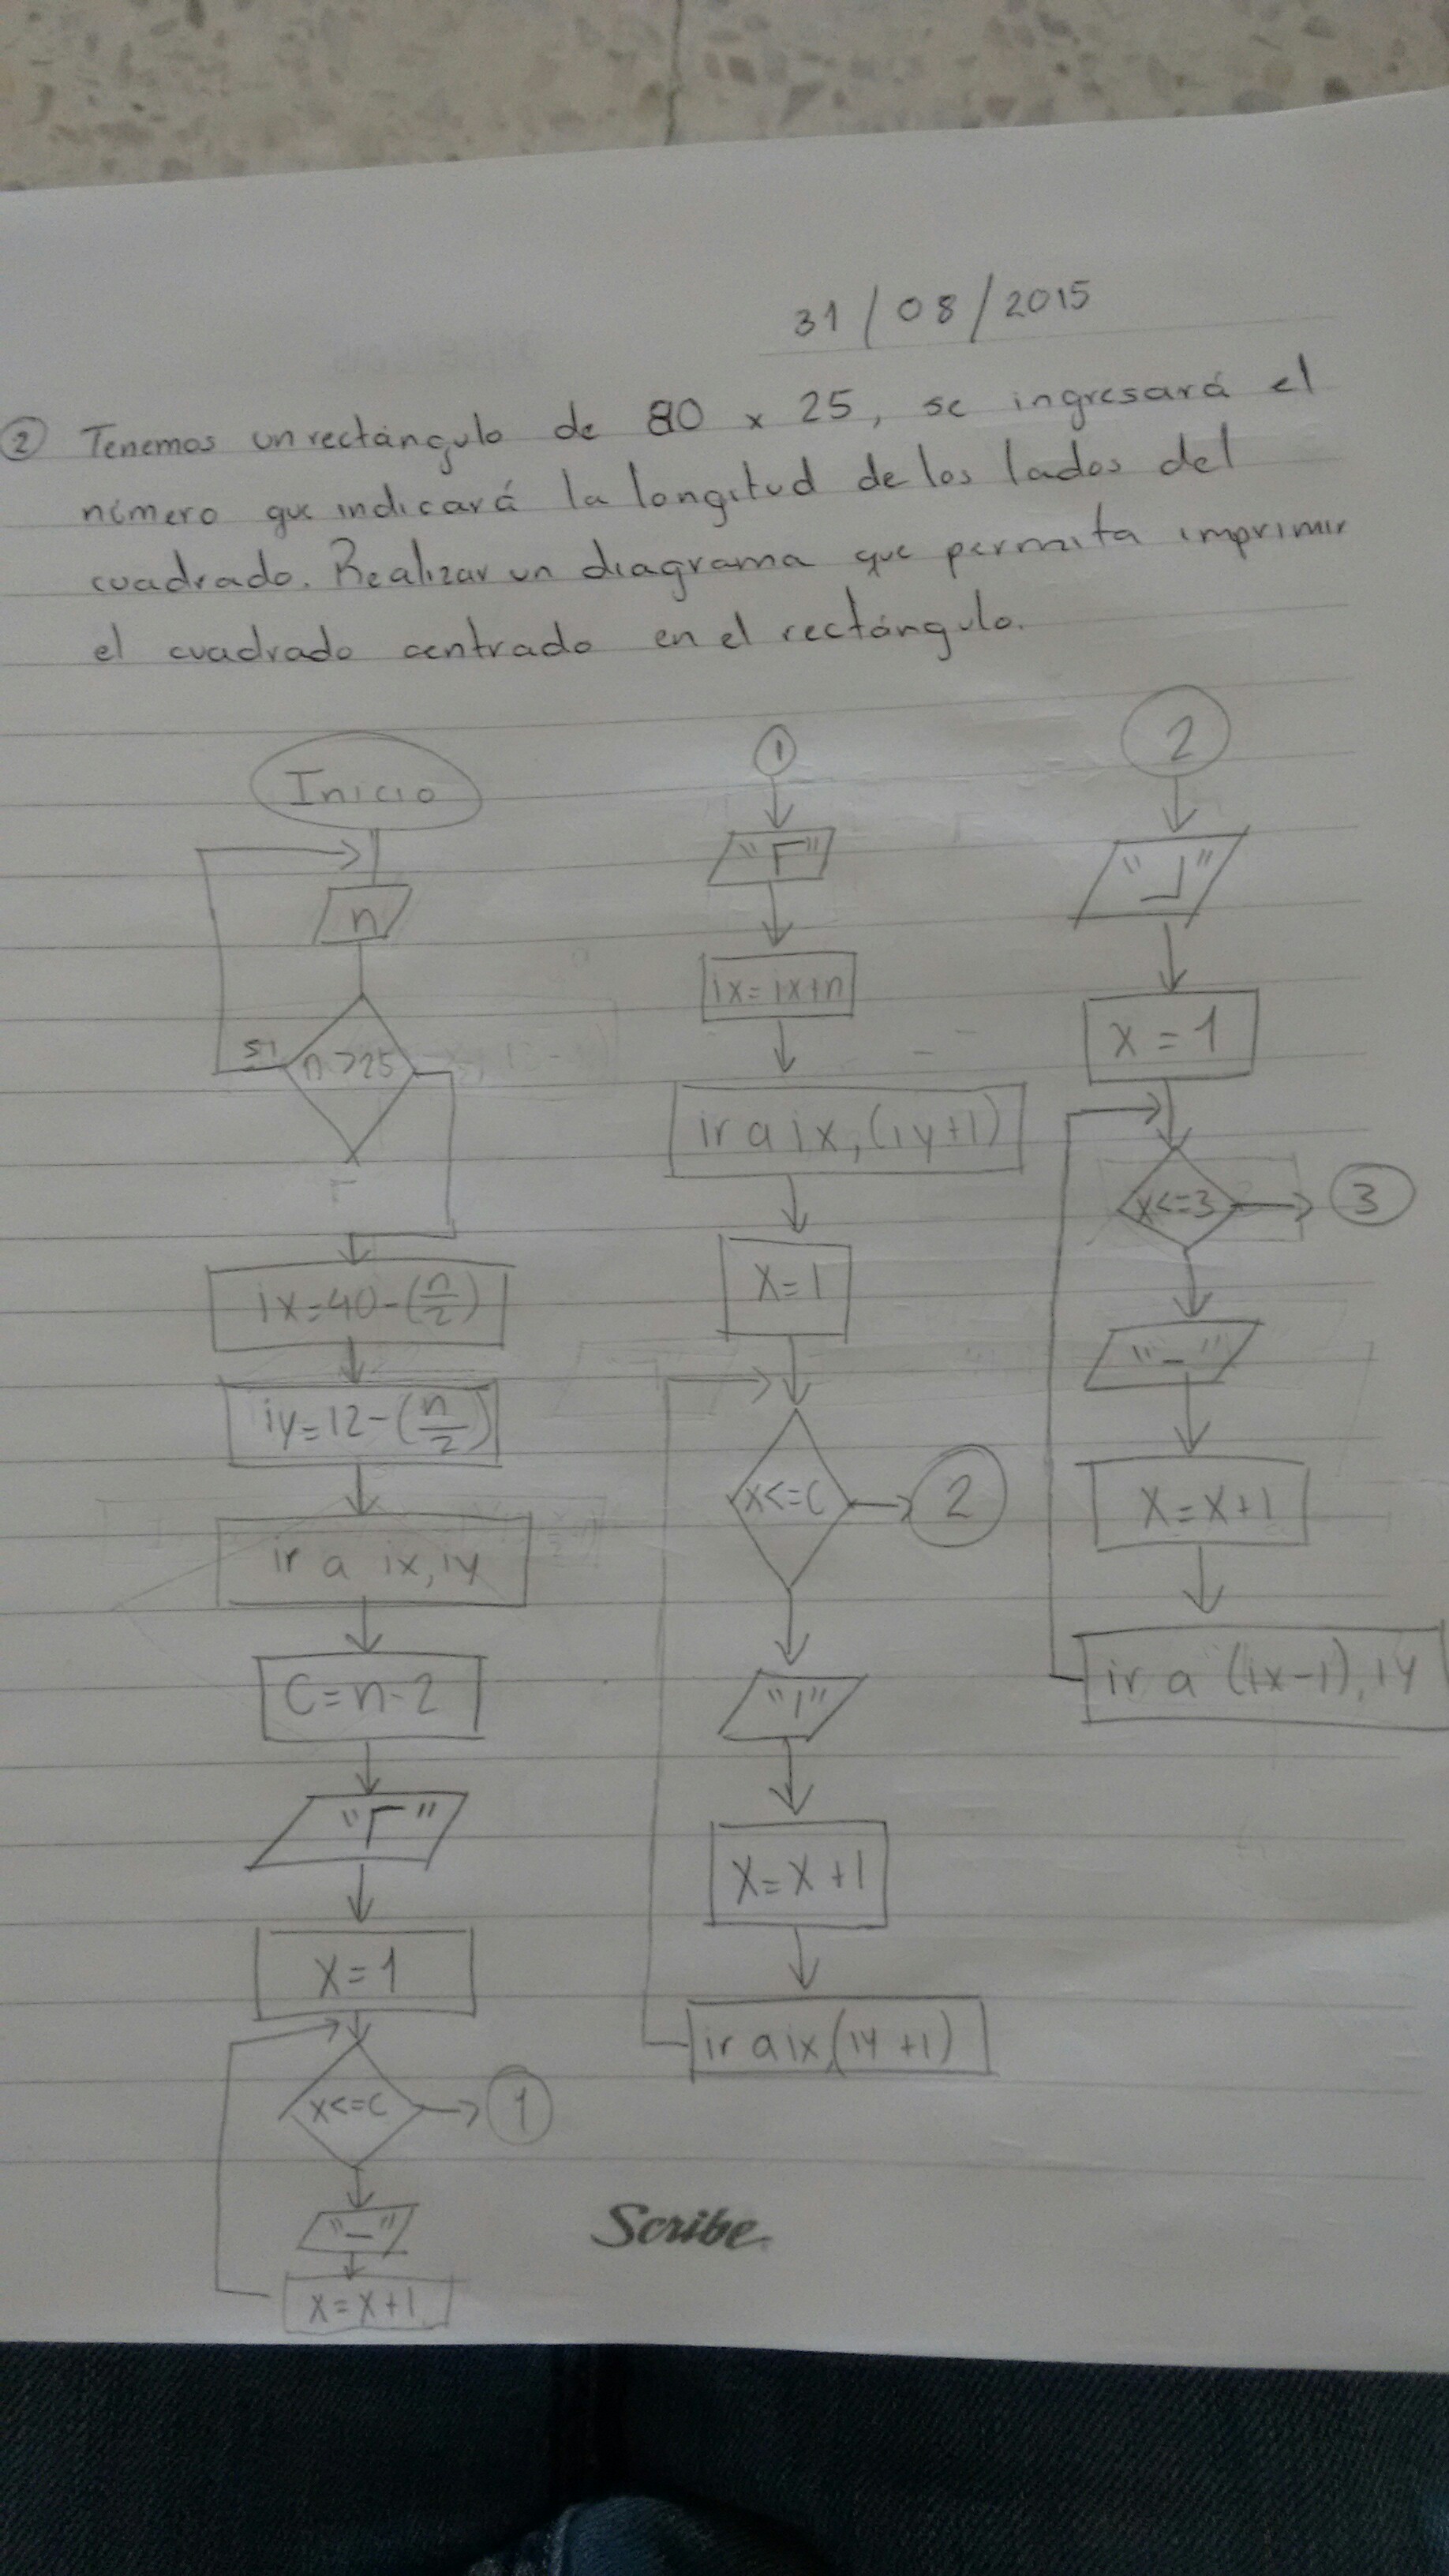 31/08/2015
② Tenemos un rectángulo de 80 x 25, se ingresará el
número que indicará la longitud de los lados del
cuadrado. Realizar un diagrama que permita imprimir
el cuadrado centrado en el rectángulo.
Inicio
n
n >25
si
ix=40-(n/2)
iy=12-(n/2)
ir a ix, iy
C=n-2
"Γ"
X=1
x<=c
1
"_"
X=X+1
1
"Γ"
ix=ix+n
ir a ix, (iy+1)
X=1
x<=c
2
"|"
X=X+1
ir a ix,(iy+1)
2
"┘"
X=1
x<=3
3
"-"
X=X+1
ir a (ix-1), iy
Scribe